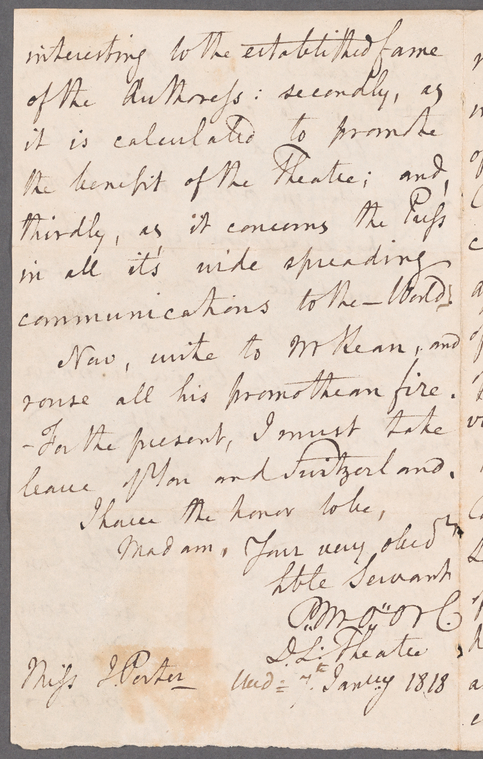 interesting to the established fame
of the Authoress: secondly, as
it is calculated to promote
the benefit of the Theatre; and,
thirdly, as it concerns the Press
in all it's wide spreading
communications to the - World.
Now, write to Mr Kean, and
rouse all his promothean fire.
- For the present, I must take
leave of You and Switzerland.
I have the honor to be,
Madam, Your very obedt
hble Servant
D. L. Theatre
Miss J. Porter Wed: 7th Janry 1818